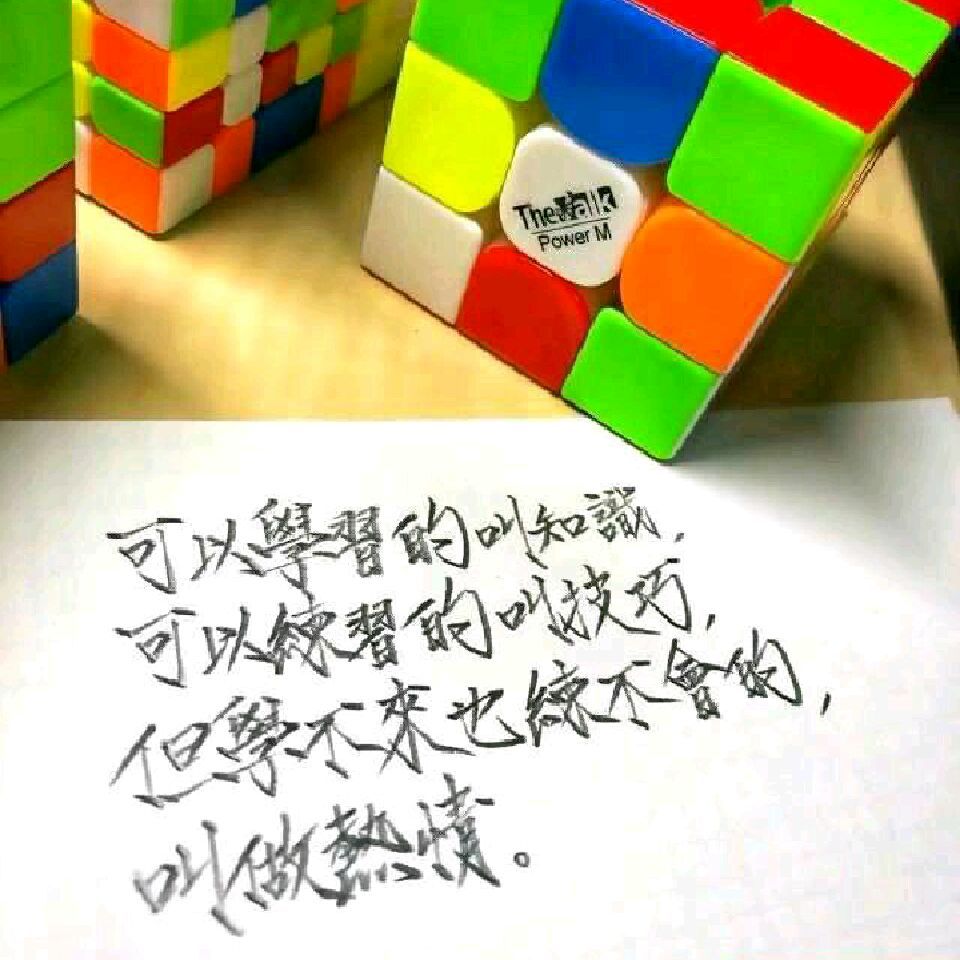 TheValk
Power M
可以學習的叫知識,
可以練習的叫技巧,
但學不來也練不會的,
叫做熱情。